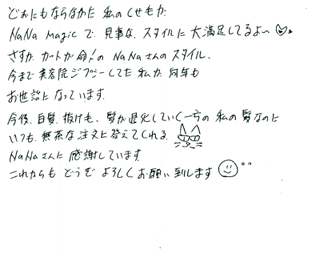 どおにもならなかた 私のくせ毛が.
NaNa magic で. 見事な. スタイルに 大満足してるよ〜
さすが. カットが命!の NaNaさんのスタイル.
今まで 美容院ジプシーしてた 私が. 何年も
お世話に なっています.
今後. 白髪. 抜け毛. 髪が退化していく一方の 私の髪なのに
いつも. 無茶な 注文に 答えてくれる.
NaNaさんに 感謝しています
これからも どうぞ よろしく お願い致します